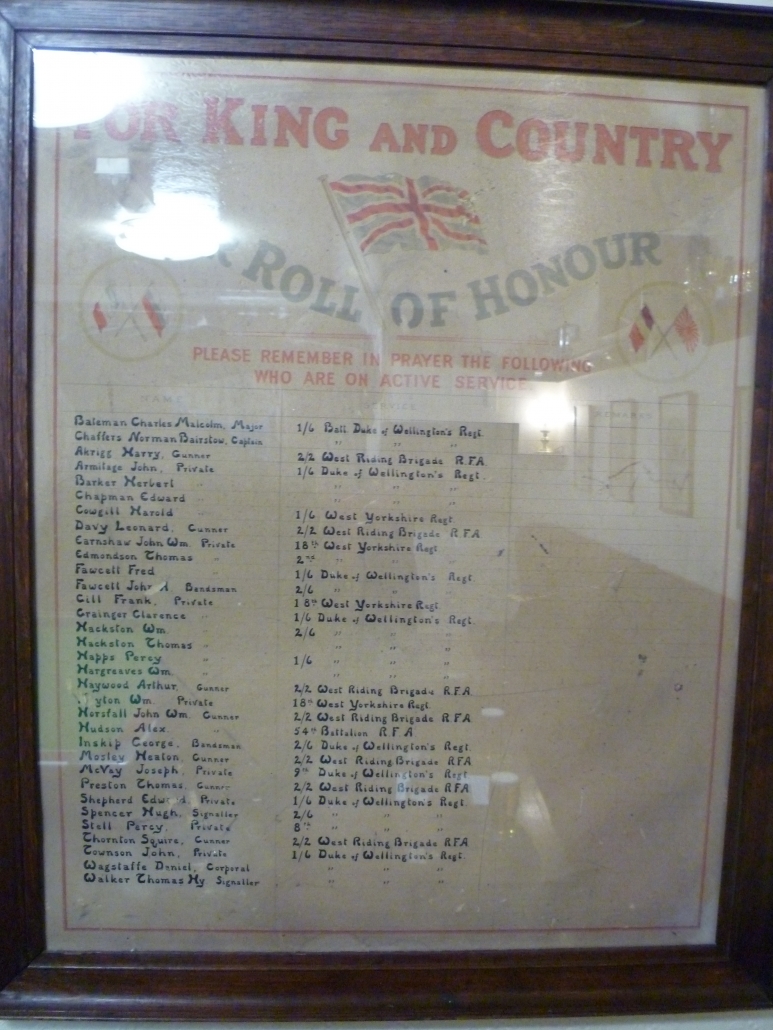 FOR KING AND COUNTRY
ROLL OF HONOUR
PLEASE REMEMBER IN PRAYER THE FOLLOWING
WHO ARE ON ACTIVE SERVICE.
NAME SERVICE REMARKS
Bateman Charles Malcolm, Major 1/6 Batt Duke of Wellington's Regt.
Chaffers Norman Bairstow, Captain " " "
Akrigg Harry, Gunner 2/2 West Riding Brigade R.F.A.
Armitage John, Private 1/6 Duke of Wellington's Regt.
Barker Herbert " " " "
Chapman Edward " " " "
Cowgill Harold " 1/6 West Yorkshire Regt.
Davy Leonard, Gunner 2/2 West Riding Brigade R.F.A
Earnshaw John Wm. Private 18th West Yorkshire Regt
Edmondson Thomas " 2nd " " "
Fawcett Fred " 1/6 Duke of Wellington's Regt.
Fawcett John Bandsman 2/6 " " "
Gill Frank, Private 18th West Yorkshire Regt.
Grainger Clarence " 1/6 Duke of Wellington's Regt.
Hackston Wm. " 2/6 " " "
Hackston Thomas " " " "
Happs Percy " 1/6 " " "
Hargreaves Wm. " " " "
Haywood Arthur, Gunner 2/2 West Riding Brigade R.F.A.
Wm. Private 18th West Yorkshire Regt.
Horsfall John Wm. Gunner 2/2 West Riding Brigade R.F.A.
Hudson Alex. " 54th Battalion R.F.A
Inskip George, Bandsman 2/6 Duke of Wellington's Regt.
Mosley Heaton, Gunner 2/2 West Riding Brigade R.F.A.
McVay Joseph, Private 9th Duke of Wellington's Regt
Preston Thomas, Gunner 2/2 West Riding Brigade R.F.A.
Shepherd Edward, Private 1/6 Duke of Wellington's Regt
Spencer Hugh, Signaller 2/6 " " "
Stell Percy, Private 8th " " "
Thornton Squire, Gunner 2/2 West Riding Brigade R.F.A.
Townson John, Private 1/6 Duke of Wellington's Regt.
Wagstaffe Daniel, Corporal " " "
Walker Thomas Hy. Signaller " " "